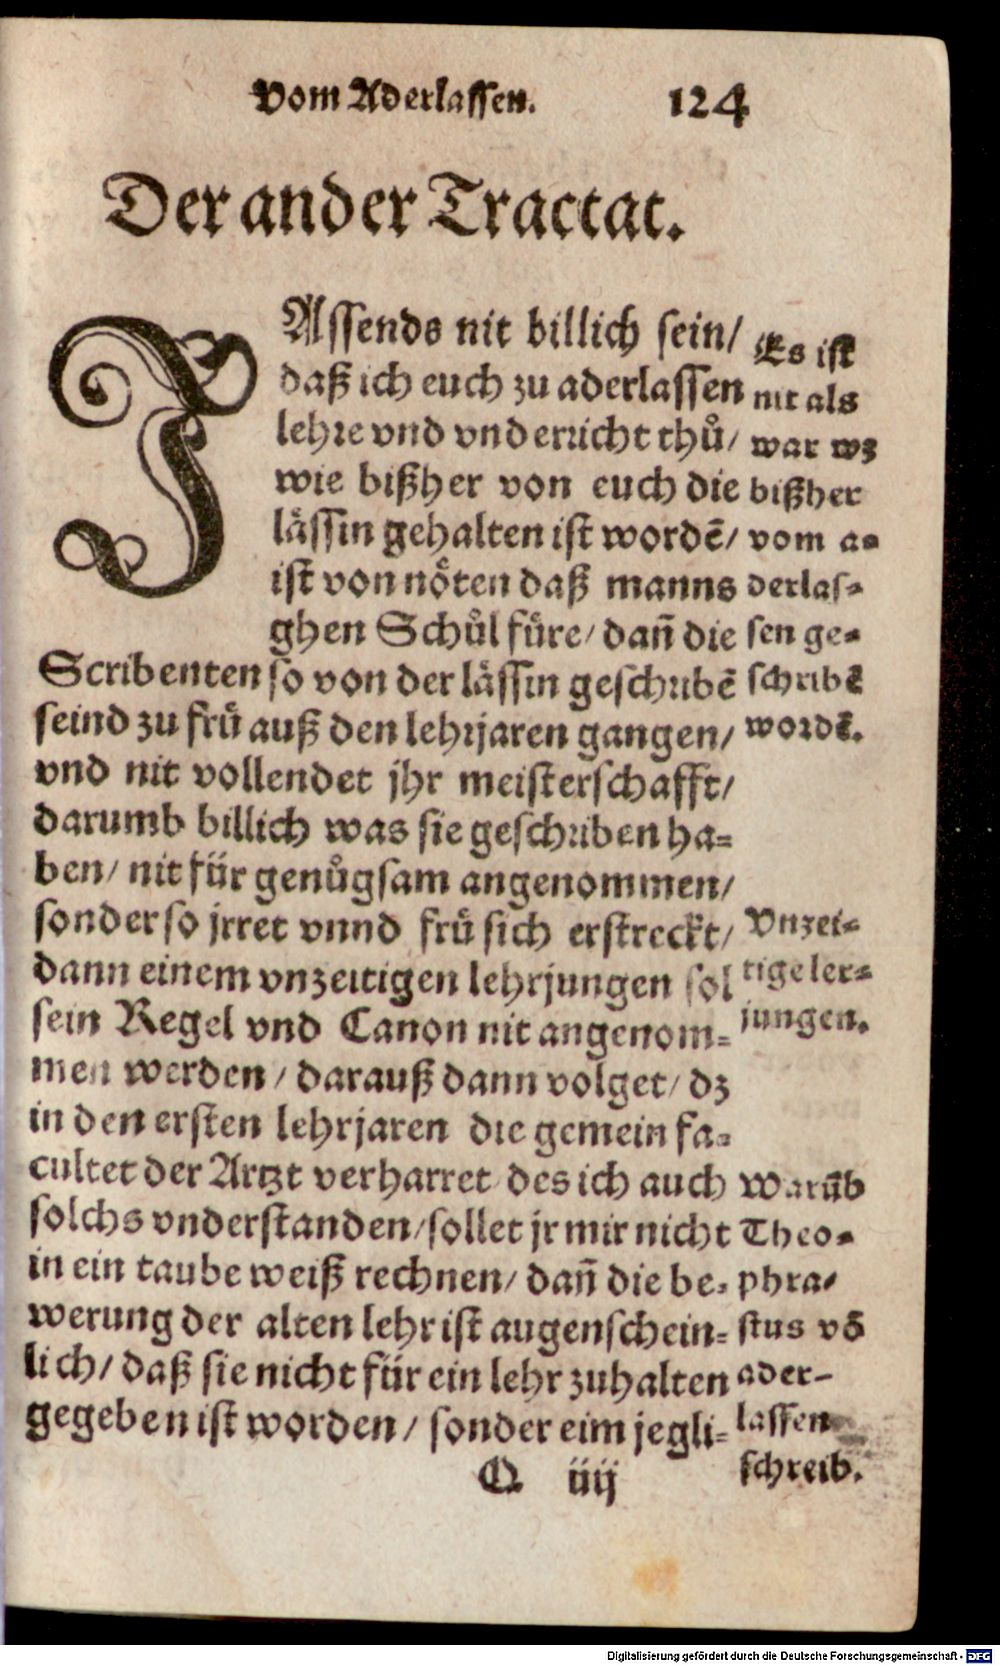 Vom Aderlassen. 124
Der ander Tractat.
IAssends nit billich sein/
daß ich euch zu aderlassen
lehre vnd vnderricht thů/
wie bißher von euch die
lässin gehalten ist wordẽ/
ist von nöten daß manns
ghen Schůl füre/ dañ die
Scribenten so von der lässin geschribẽ
seind zu frü auß den lehrjaren gangen/
vnd nit vollendet jhr meisterschafft/
darumb billich was sie geschriben ha-
ben/ nit für genůgsam angenommen/
sonder so jrret vnnd frü sich erstreckt/
dann einem vnzeitigen lehrjungen sol
sein Regel vnd Canon nit angenom-
men werden/ darauß dann volget/ dz
in den ersten lehrjaren die gemein fa-
cultet der Artzt verharret des ich auch
solchs vnderstanden/ sollet jr mir nicht
in ein taube weiß rechnen/ dañ die be-
werung der alten lehr ist augenschein-
lich/ daß sie nicht für ein lehr zuhalten
gegeben ist worden/ sonder eim jegli-
Es ist
nit als
war wz
bißher
vom a-
derlas-
sen ge-
schribẽ
wordẽ.
Vnzei-
tige ler-
jungen.
Warũb
Theo-
phra-
stus võ
ader-
lassen
schreib.
Q iiij
Digitalisierung gefördert durch die Deutsche Forschungsgemeinschaft - DFG